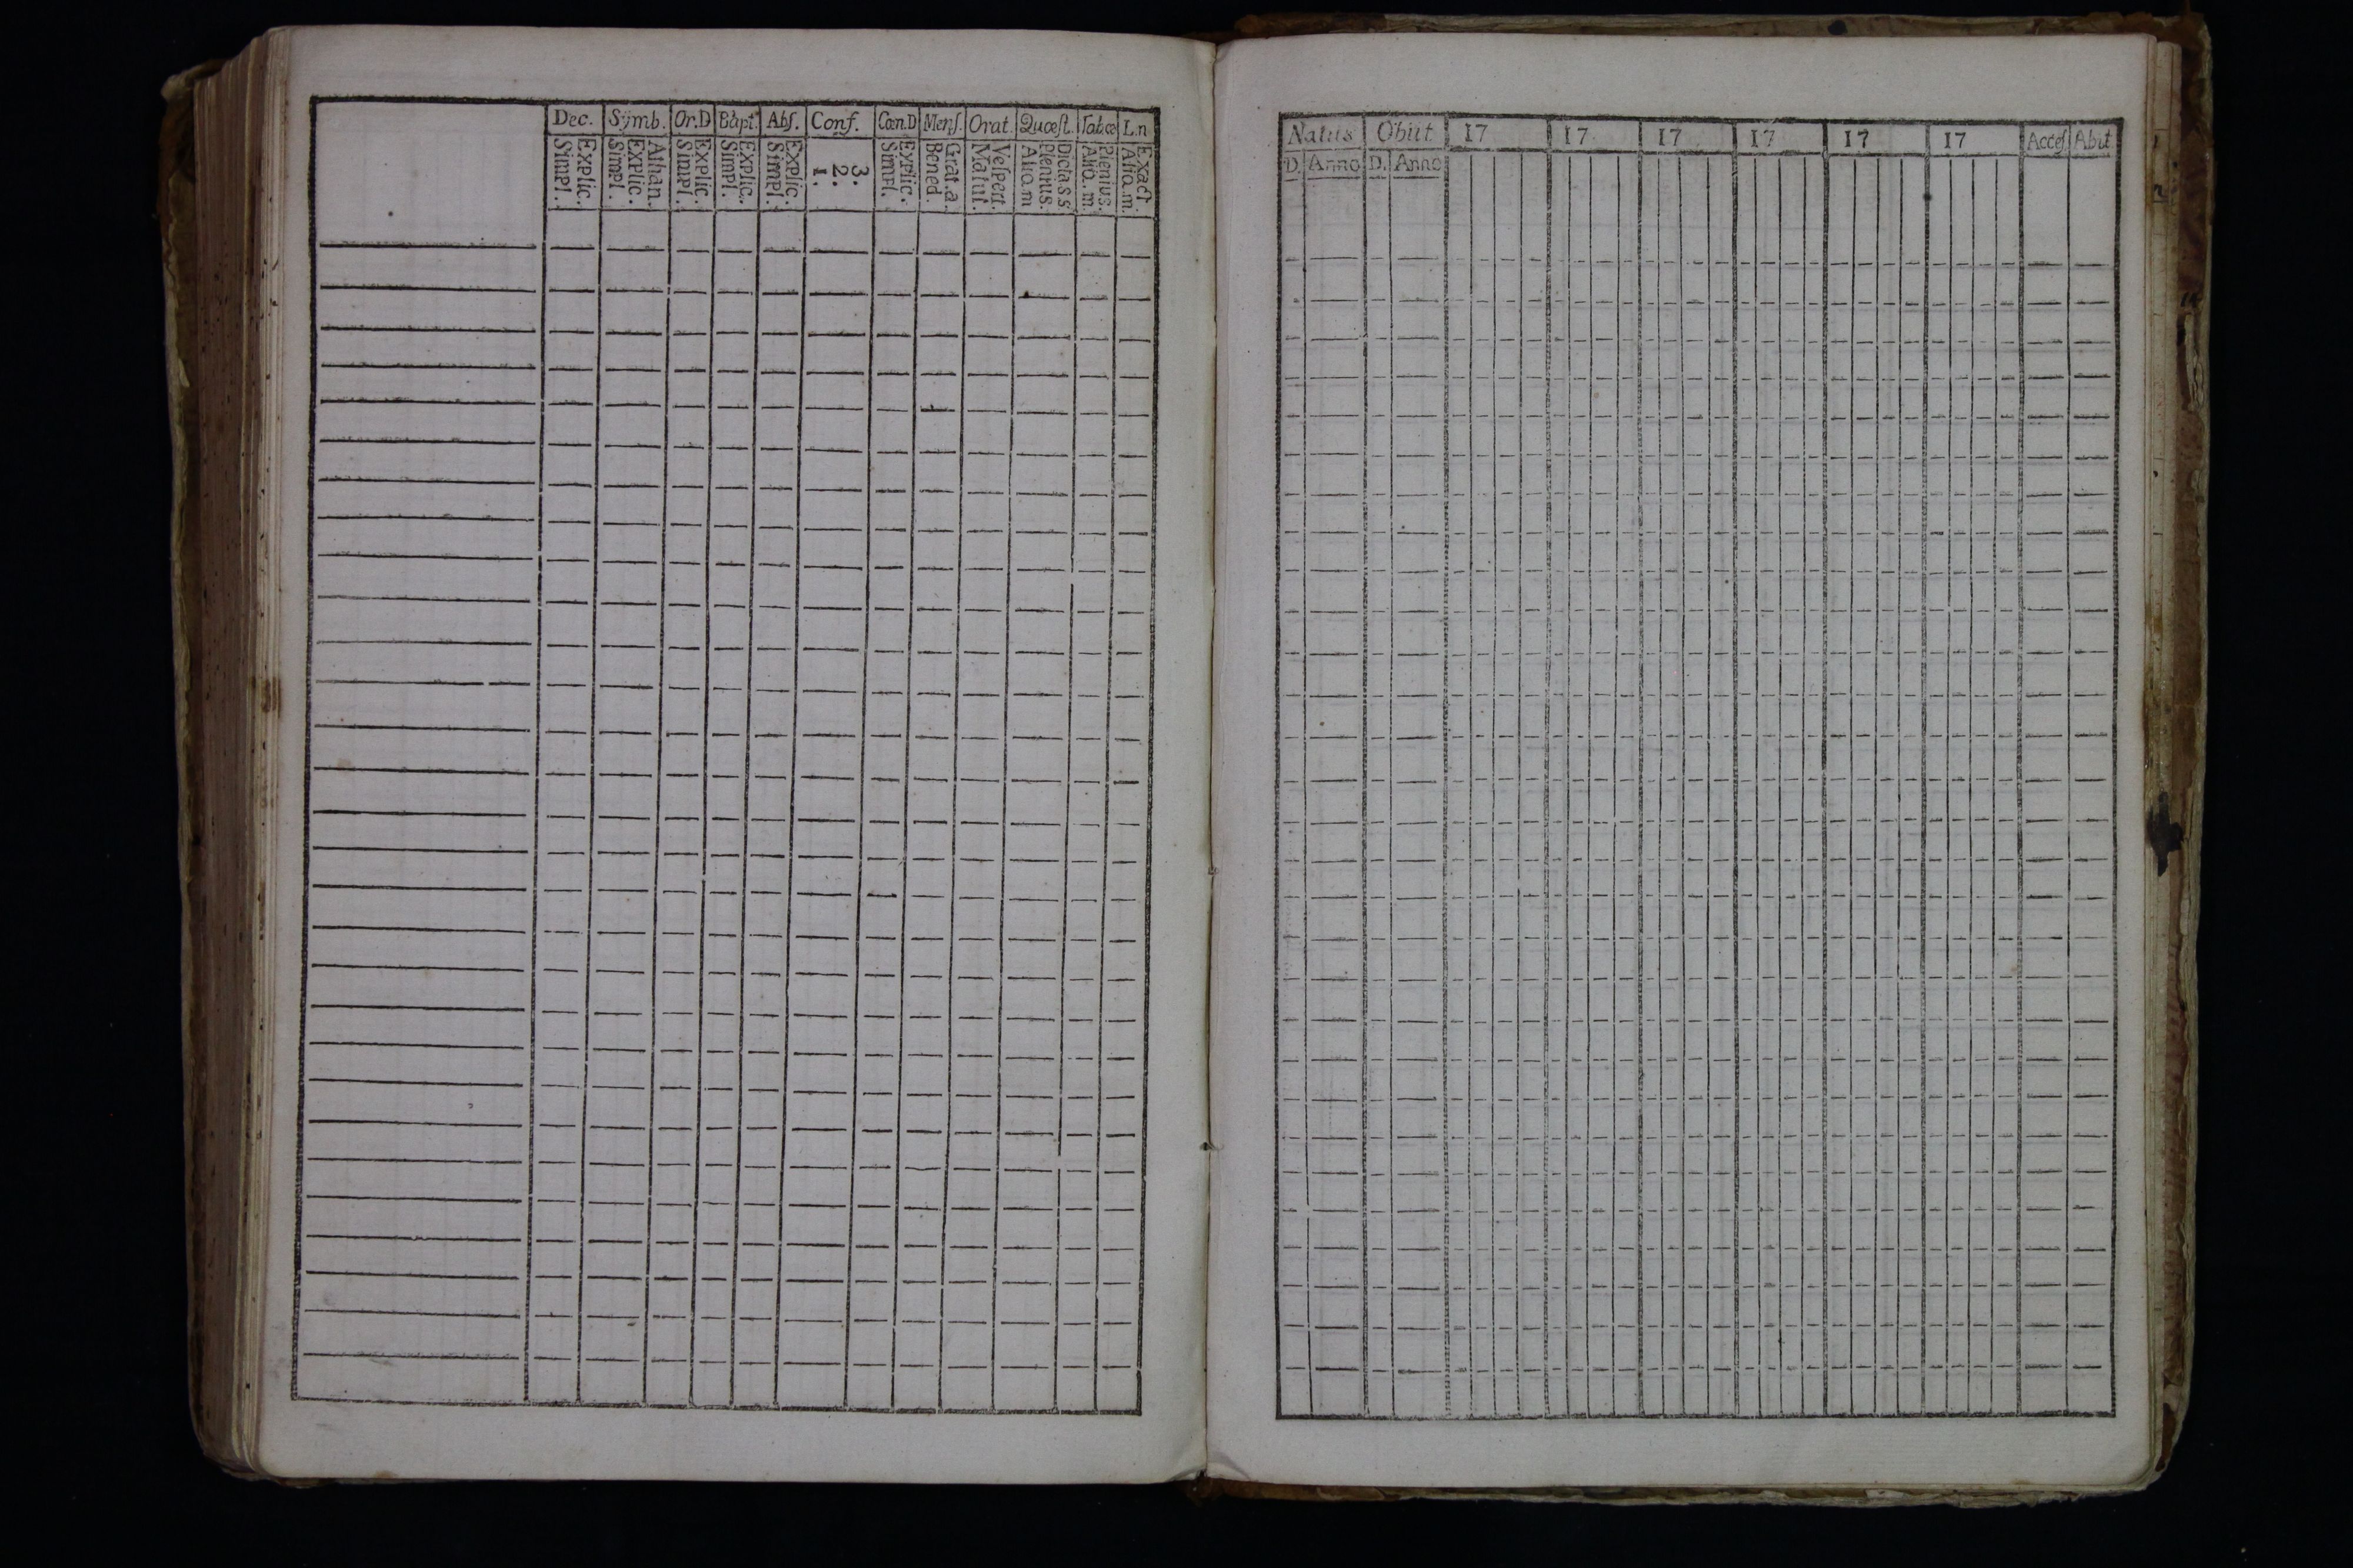 Dec. Sÿmb. Or.D Bapt. Abſ. Conf. Cœn.D Menſ. Orat. Quœſt. Tab.œ L.n
Explic. Simpl. Athan. Explic. Simpl. Explic. Simpl. Explic. Simpl. Explic. Simpl. 3. 2. 1. Explic. Simpl. Grat.a Bened. Veſpert. Matut. Dicta.s.s Plenius. Aliq.m Plenius. Aliq.m. Exact. Aliq.m.
Natus Obiit 17 17 17 17 17 17 Acceſ Abiit
D. Anno D. Anno